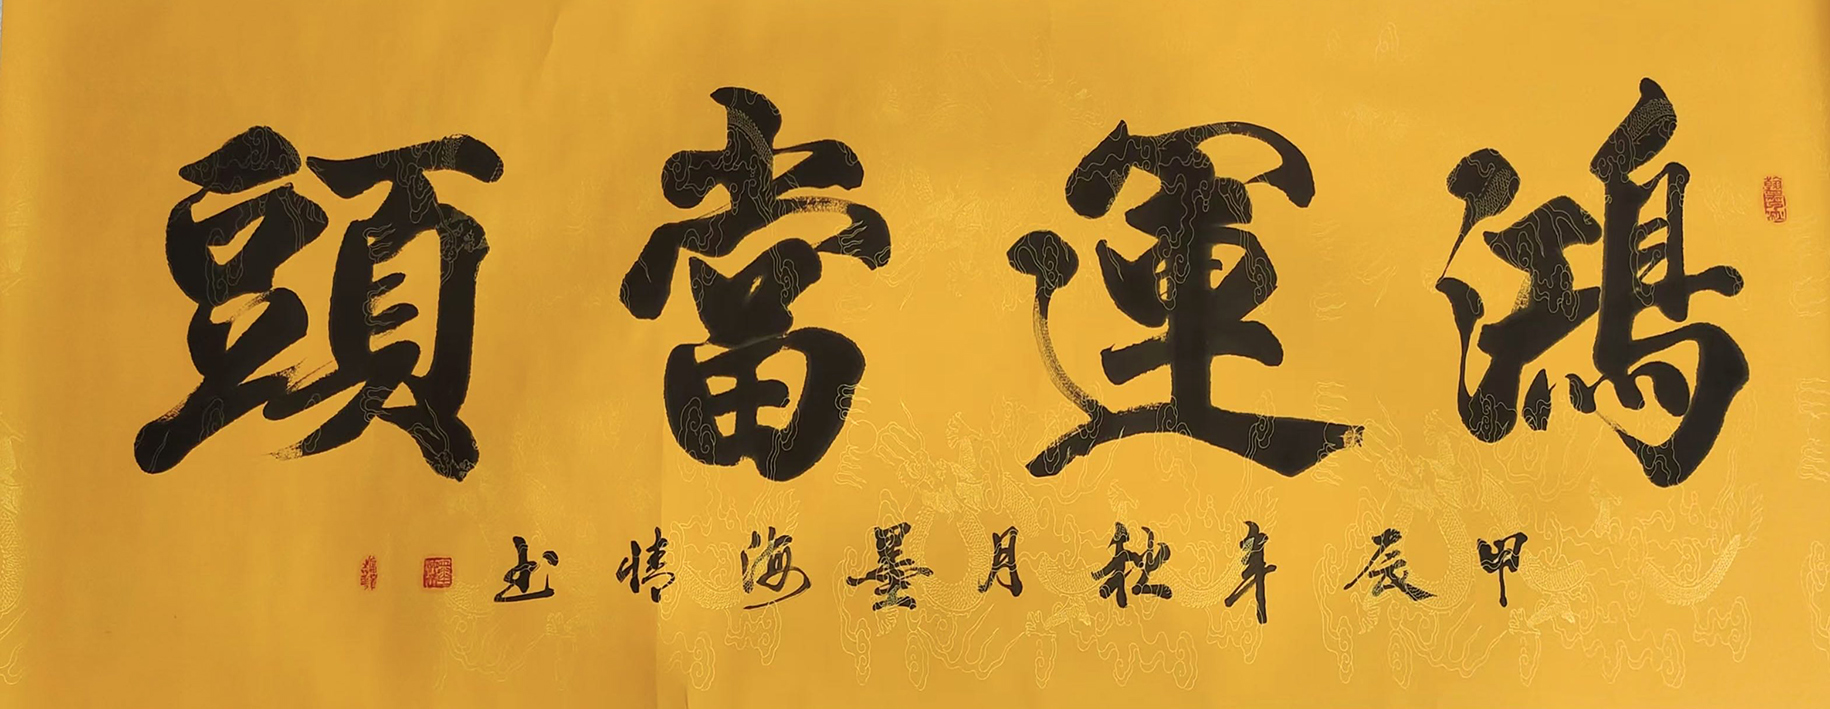 鴻運當頭
甲辰年秋月墨海情书